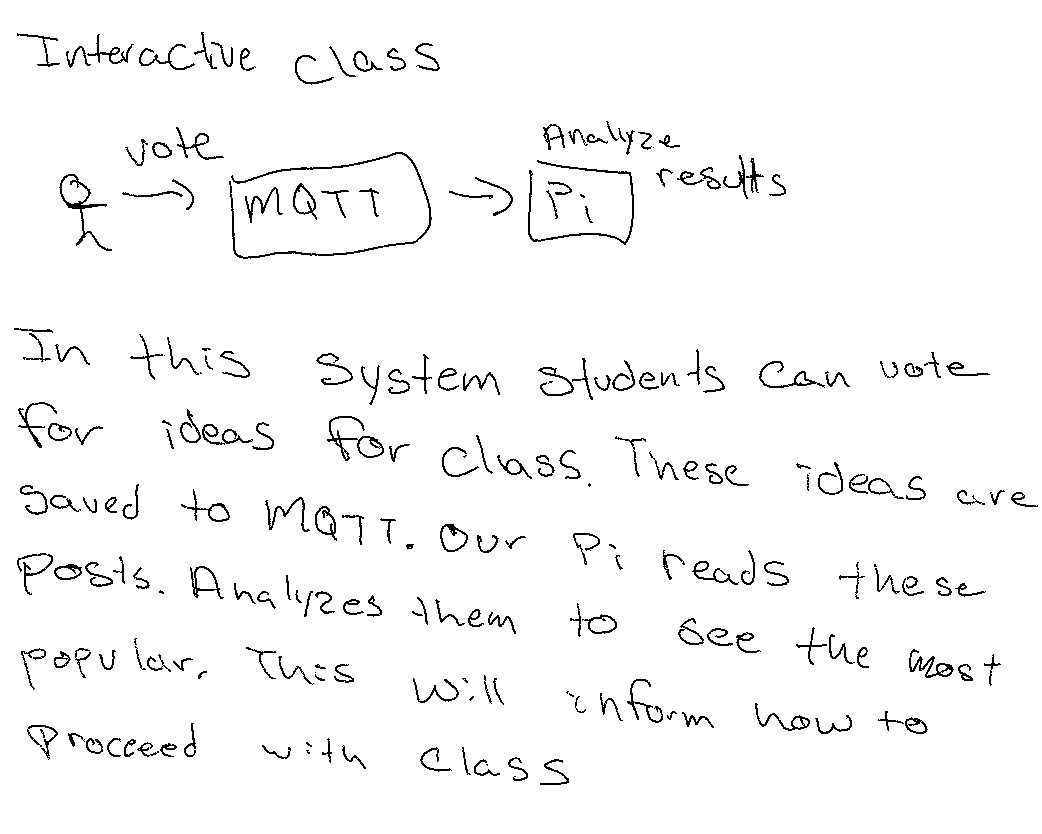 Interactive class
vote
MQTT
Analyze
results
Pi
In this system students can vote
for ideas for class. These ideas are
saved to MQTT. Our Pi reads these
posts. Analyzes them to see the most
popular. This will inform how to
proceed with class